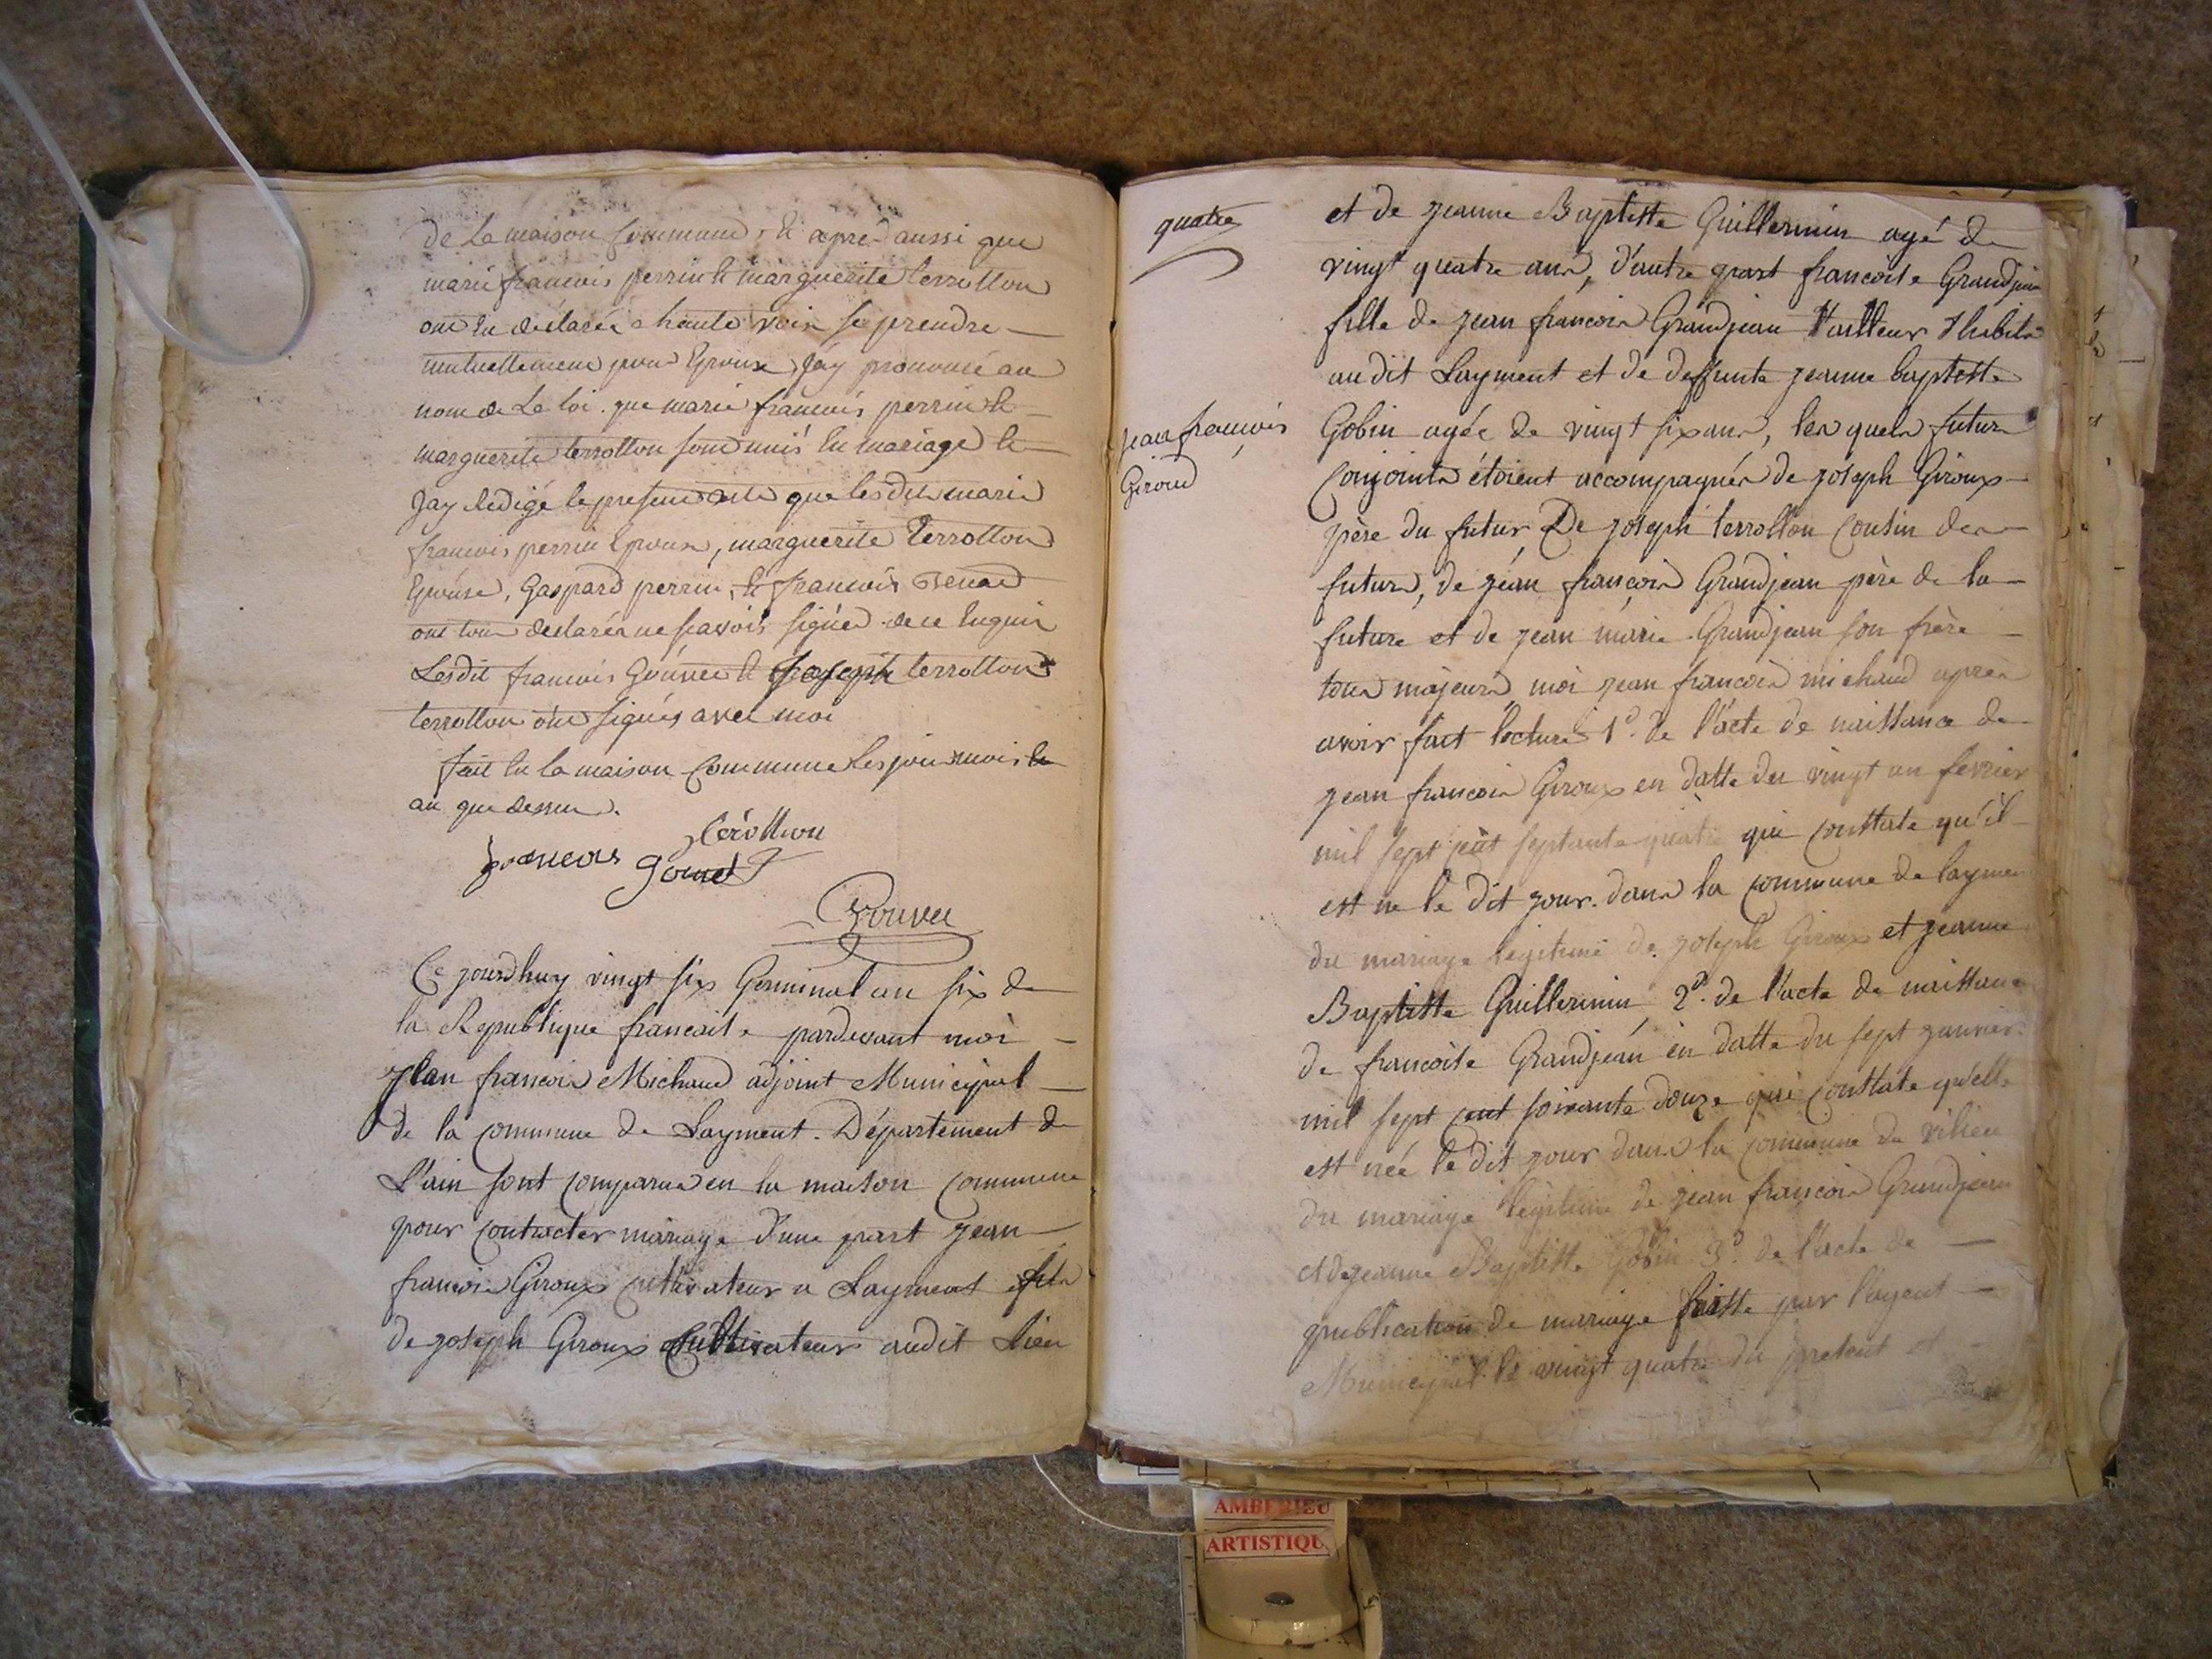 de la maison commune, et après aussi que
marie francois perrin et marguerite terrollon
ont eu déclarée a haute voix se prendre
mutuellement pour Epoux, jáy prononcé au
nom de la loi que marie francois perrin et
marguerite terrollon sont unis en mariage et
jay redigé le present acte que lesdits marie
francois perrin Epoux, marguerite terrollon
Epouse, Gaspard perrin, et francois
ont tous declarés ne sçavoir signer de ce Enquis
Lesdit francois Gouvee et joseph terrollon
terrollon ont signés avec moi
fait en la maison commune les jour mois et
an que dessus.
Terollion
francois
Ce jourdhuy vingt six Germinal an six de
la Republique francaise pardevant moi
Jean francois Michaud adjoint Municipal
de la commune de Layment. Département de
L'ain sont comparus en la maison commune
pour contracter mariage d'une part jean
francois Giroux cultivateur a Layment fils
de joseph Giroux cultivateur audit lieu
quatre
jean francois
Giroud
et de jeanne Baptiste Guillermin agé de
vingt quatre ans, d'autre part francoise Grandjean
fille de jean francois Grandjean tailleur d'habits
au dit Layment et de deffunte jeanne baptiste
Gobin agée de vingt six ans, les quels futurs
conjoints étoient accompagnés de joseph Giroux
père du futur De joseph terrollon cousin des
futurs, de jéan françois Grandjean père de la
future et de jean marie Grandjean son frère
tous majeurs, moi jean francois michaud après
avoir fait lecture 1º. de l'acte de naissance de
jean francois Giroux en datte du vingt un fevrier
mil sept cent septante quatre qui constate qu'il
est ne le dit jour dans la commune de laymen
du mariage legitime de joseph Giroux et jeanne
Baptiste Guillermin, 2º. de l'acte de naissance
de francoise Grandjéan en datte du sept janvier
mil sept cent soixante douze qui constate qu'elle
est née le dit jour dans la commune de vilieu
du mariage légitime de jean françois Grandjean
et de jeanne Baptiste Gobin 3º. de l'acte de
publication de mariage faitte par l'agent
Municipal le vingt quatre du present et
AMBERIEU
ARTISTIQU